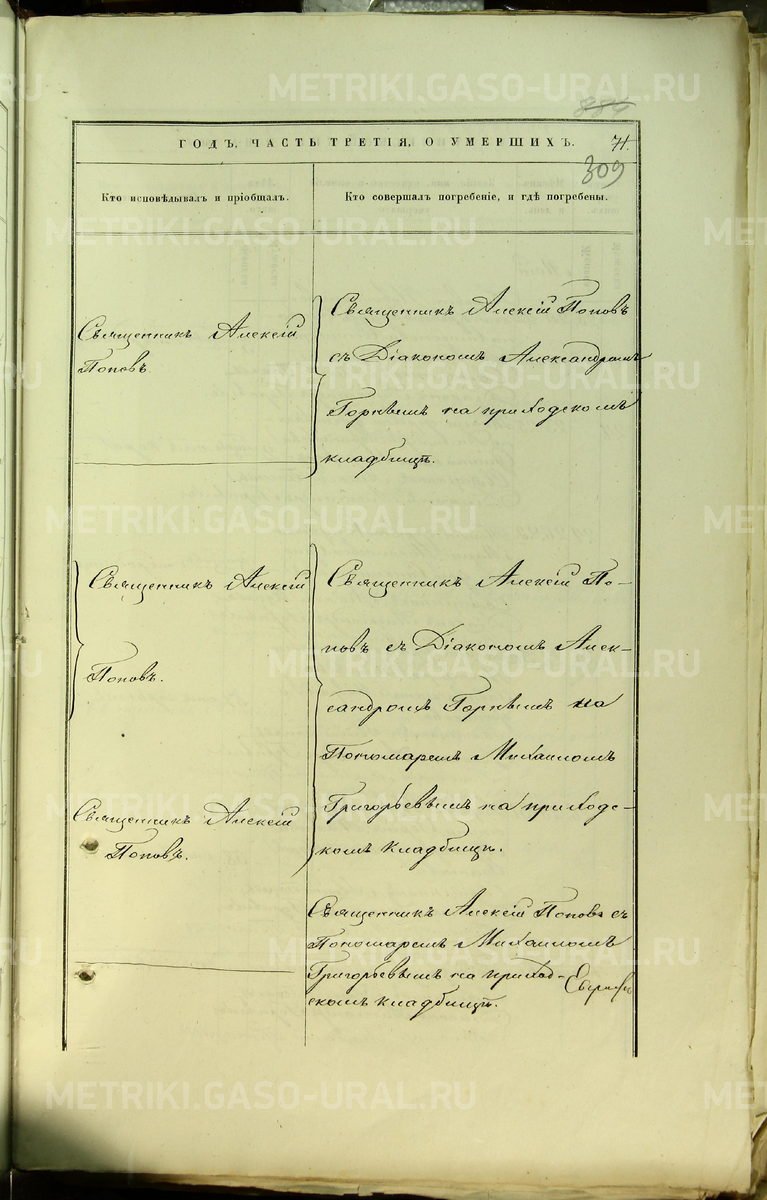 METRIKI.GASO-URAL.RU
886
ГОДЪ, ЧАСТЬ ТРЕТІЯ, О УМЕРШИХЪ.
71.
309
Кто исповѣдывалъ и пріобщалъ.
Кто совершалъ погребеніе, и гдѣ погребены.
Священникъ Алексій
Поповъ
Священникъ Алексій Поповъ
съ Діакономъ Александромъ
Горнымъ на приходскомъ
кладбищѣ.
Священникъ Алексій
Поповъ.
Священникъ Алексій По-
повъ съ Діакономъ Алек-
сандромъ Горнымъ на
Пономаремъ Михаиломъ
Григорьевымъ на приходс-
комъ кладбищѣ.
Священникъ Алексій
Поповъ.
Священникъ Алексій Поповъ съ
Пономаремъ Михаиломъ
Григорьевымъ на приход-
скомъ кладбищѣ.